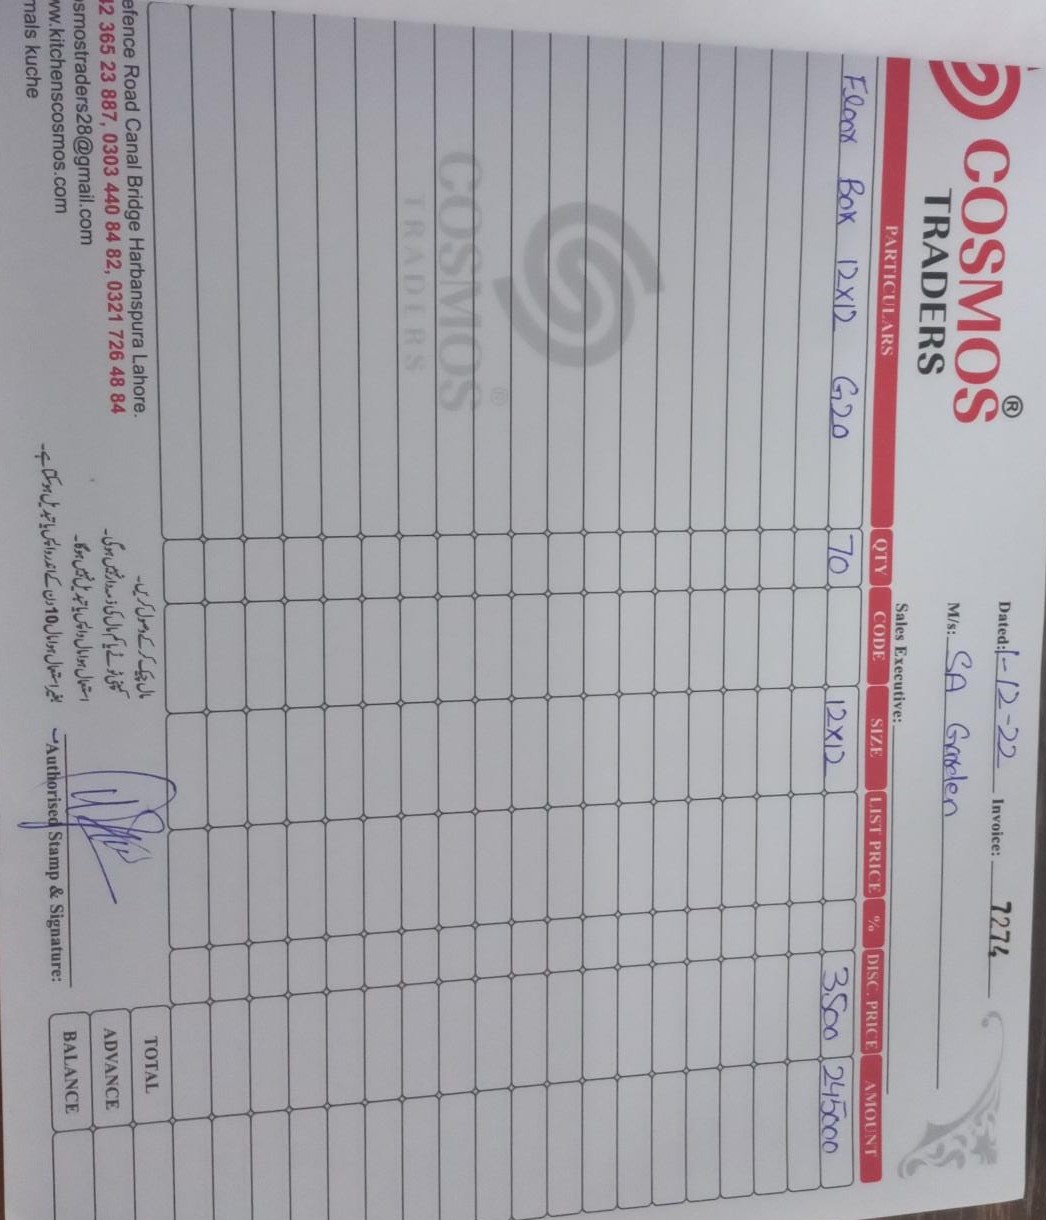 COSMOS ®
TRADERS
Dated: 1-12-22 Invoice: 7274
M/s: SA Garden
Sales Executive:
PARTICULARS QTY CODE SIZE LIST PRICE % DISC. PRICE AMOUNT
Floor Box 12x12 G20 70 12x12 3500 245000
COSMOS ®
TRADERS
efence Road Canal Bridge Harbanspura Lahore.
42 365 23 887, 0303 440 84 82, 0321 726 48 84
osmostraders28@gmail.com
ww.kitchenscosmos.com
mals kuche
مال چیک کر کے وصول کریں۔
کمپنی ٹوٹے یا کم مال کی ذمہ دار نہیں ہوگی۔
استعمال ہوا مال واپس یا تبدیل نہیں ہوگا۔
بغیر استعمال ہوا مال 10 دن کے اندر واپس یا تبدیل ہو سکتا ہے۔
Authorised Stamp & Signature:
TOTAL
ADVANCE
BALANCE